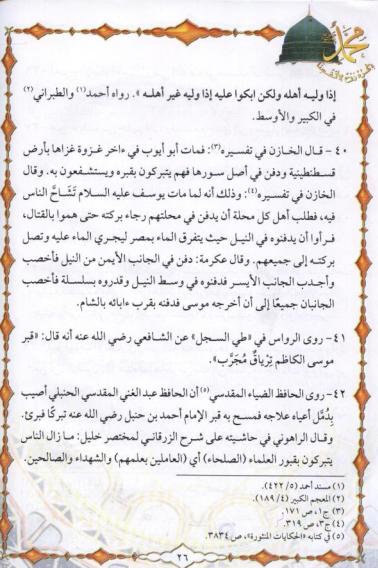 محمد
إذا وليـه أهله ولكن ابكوا عليه إذا وليه غير أهلـه ». رواه أحمد(١) والطبراني(٢)
في الكبير والأوسط.
٤٠ - قـال الخازن في تفسيره(٣): فمات أبو أيوب في ءاخر غزوة غزاها بأرض
قسطنطينية ودفن في أصل سورها فهم يتبركون بقبره ويستشفعون به. وقال
الخازن في تفسيره(٤): وذلك أنه لما مات يوسف عليه السلام تَشَاحَّ الناس
فيه، فطلب أهل كل محلة أن يدفن في محلتهم رجاء بركته حتى هموا بالقتال،
فـرأوا أن يدفنوه في النيـل حيث يتفرق الماء بمصر ليجري الماء عليه وتصل
بركتـه إلى جميعهم. وقال عكرمة: دفن في الجانب الأيمن من النيل فأخصب
وأجـدب الجانب الأيسـر فدفنوه في وسـط النيل وقدروه بسلسلة فأخصب
الجانبان جميعًا إلى أن أخرجه موسى فدفنه بقرب ءابائه بالشام.
٤١ - روى الرواس في «طي السجل» عن الشافعي رضي الله عنه أنه قال: «قبر
موسى الكاظم تِرْيَاقٌ مُجَرَّب».
٤٢ - روى الحافظ الضياء المقدسي(٥) أن الحافظ عبد الغني المقدسي الحنبلي أصيب
بِدُمَّل أعياه علاجه فمسح به قبر الإمام أحمد بن حنبل رضي الله عنه تبركًا فبرئ.
وقـال الراهوني في حاشيته على شرح الزرقاني لمختصر خليل: ما زال الناس
يتبركون بقبور العلماء (الصلحاء) أي (العاملين بعلمهم) والشهداء والصالحين.
(١) مسند أحمد (٤٢٢/٥).
(٢) المعجم الكبير (١٨٩/٤).
(٣) ج١، ص ١٧١.
(٤) ج٣، ص ٣١٩.
(٥) في كتابه «الحكايات المنثورة»، ص ٣٨٣٤.
٢٦